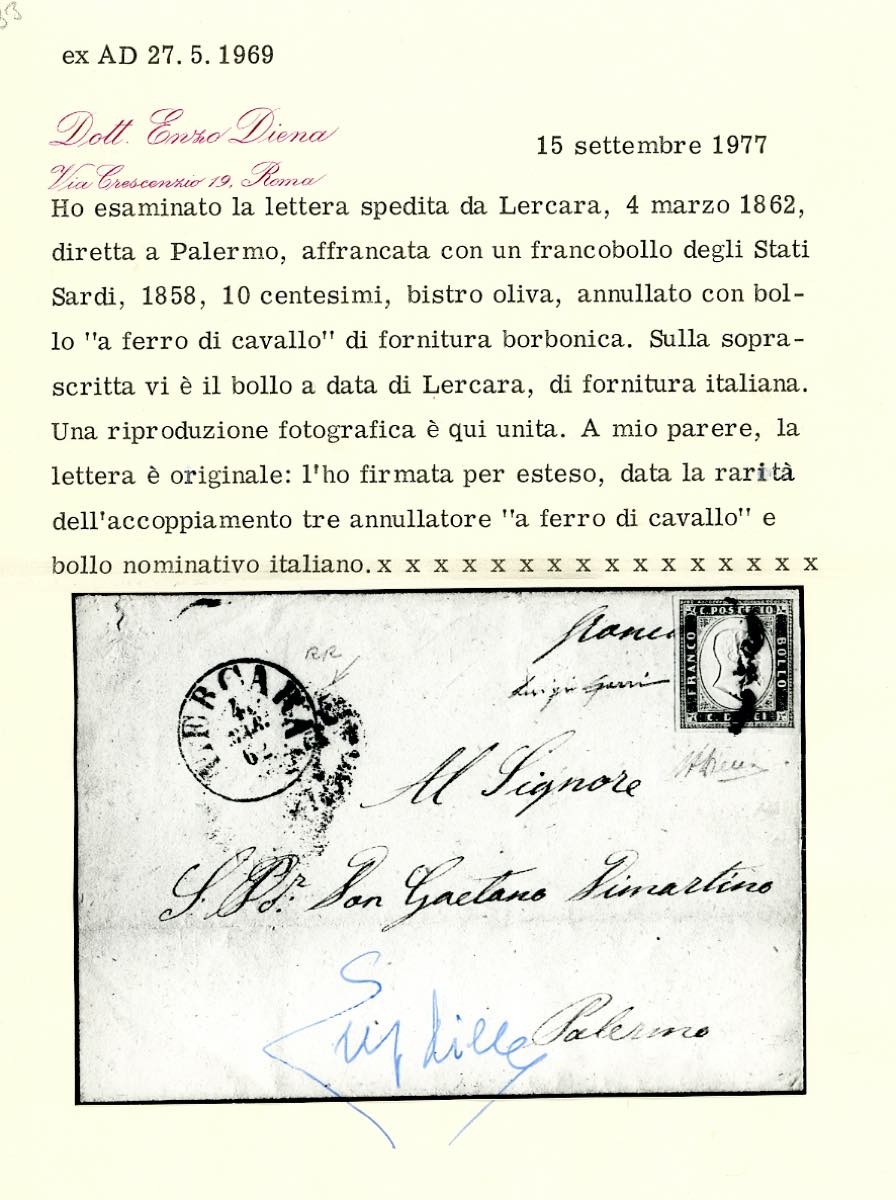 ex AD 27. 5. 1969
Dott. Enzo Diena
15 settembre 1977
Via Crescenzio 19, Roma
Ho esaminato la lettera spedita da Lercara, 4 marzo 1862,
diretta a Palermo, affrancata con un francobollo degli Stati
Sardi, 1858, 10 centesimi, bistro oliva, annullato con bol-
lo "a ferro di cavallo" di fornitura borbonica. Sulla sopra-
scritta vi è il bollo a data di Lercara, di fornitura italiana.
Una riproduzione fotografica è qui unita. A mio parere, la
lettera è originale: l'ho firmata per esteso, data la rarità
dell'accoppiamento tre annullatore "a ferro di cavallo" e
bollo nominativo italiano. x x x x x x x x x x x x x x x x x
C. POSTE 10
FRANCO
BOLLO
C. DIECI
Franco
RR
LERCARA
4
MAR
62
Al Signore
S. Pr. Don Gaetano Dimartino
Palermo